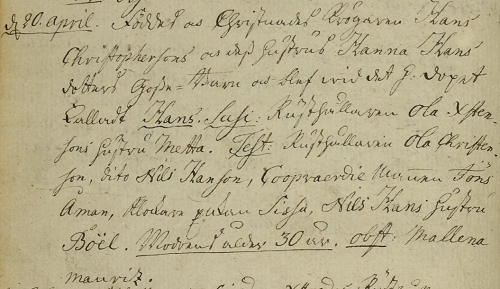 d 20. april. Föddes och Christnades Krögaren Hans
Christophersons och dess hustrus Hanna Hans
dotters Gosse=Barn och blef wid det h. dopet
Kalladt Hans. Susc: Rusthållaren Ola Xsten-
sons hustru Metta. Test: Rusthållaren Ola Christen-
son, dito Nils Hanson, Coopvaerdie Mannen Töns
Aman, Klockare pigan Sissa, Nils Hans hustru
Böel. Modrens ålder 30 år. obst: Mallena
Mauritz.